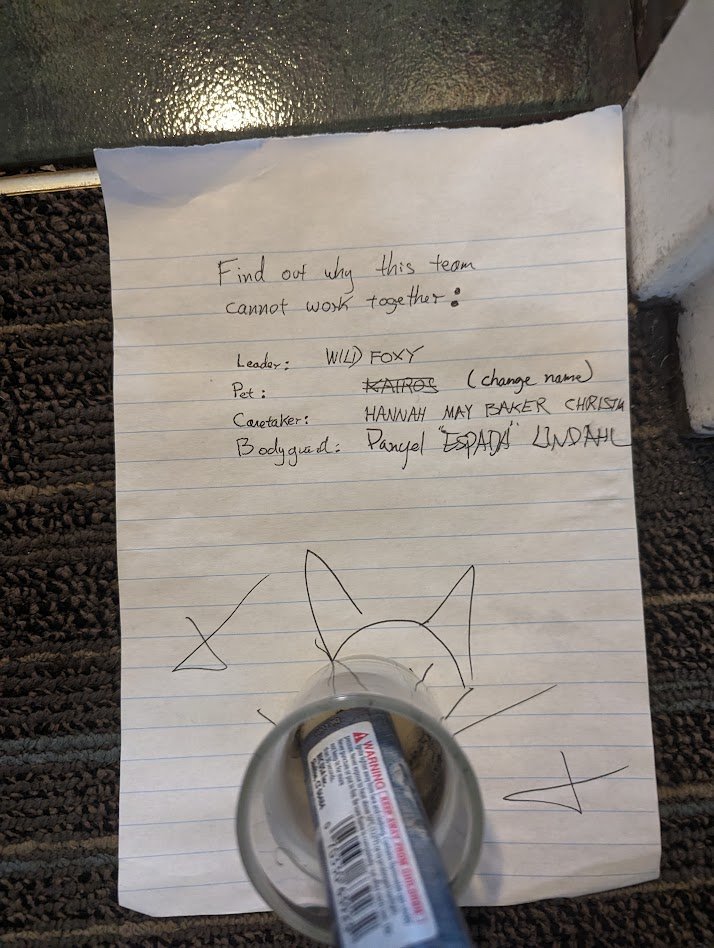 Find out why this team
cannot work together:
Leader: WILD FOXY
Pet: KAIROS (change name)
Caretaker: HANNAH MAY BAKER CHRISTM
Bodyguard: Danyel "ESPADA" LINDAHL
WARNING KEEP AWAY FROM CHILDREN